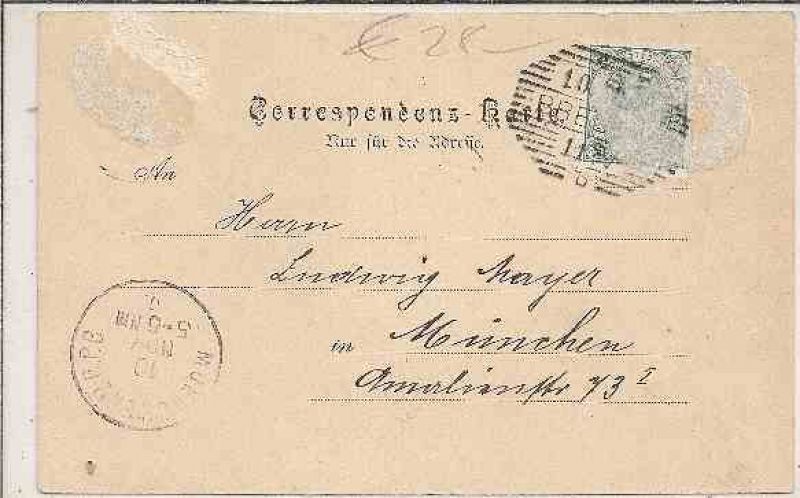 € 28
Correspondenz-Karte
Nur für die Adresse.
An
Herrn
Ludwig Mayer
in München
Amalienstr 73 I
10
11
5-6 NM
NOV